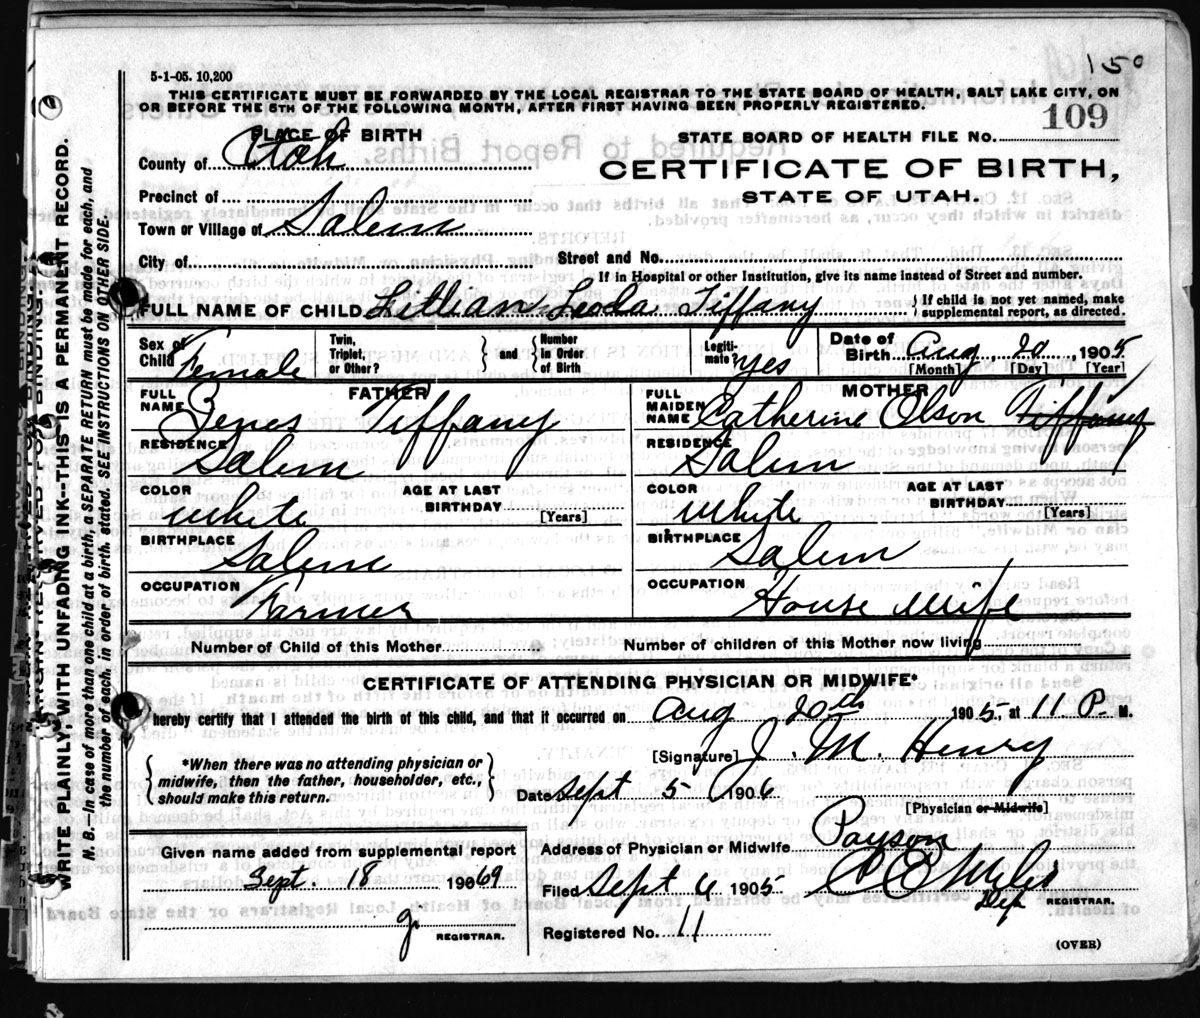 150
5-1-05. 10,200
THIS CERTIFICATE MUST BE FORWARDED BY THE LOCAL REGISTRAR TO THE STATE BOARD OF HEALTH, SALT LAKE CITY, ON
OR BEFORE THE 5TH OF THE FOLLOWING MONTH, AFTER FIRST HAVING BEEN PROPERLY REGISTERED.
STATE BOARD OF HEALTH FILE No. 109
PLACE OF BIRTH
CERTIFICATE OF BIRTH,
STATE OF UTAH.
County of Utah
Precinct of
Town or Village of Salem
City of
Street and No.
If in Hospital or other Institution, give its name instead of Street and number.
FULL NAME OF CHILD Lillian Leoda Tiffany
If child is not yet named, make
supplemental report, as directed.
Sex of
Child Female
Twin,
Triplet,
or Other?
and
Number
In Order
of Birth
Legiti-
mate? Yes
Date of
Birth Aug 20, 1905
[Month] [Day] [Year]
FATHER
FULL
NAME Zenes Tiffany
RESIDENCE Salem
COLOR White
AGE AT LAST
BIRTHDAY
[Years]
BIRTHPLACE Salem
OCCUPATION Farmer
MOTHER
FULL
MAIDEN
NAME Catherine Olson Tiffany
RESIDENCE Salem
COLOR Whyte
AGE AT LAST
BIRTHDAY
[Years]
BIRTHPLACE Salem
OCCUPATION House Wife
Number of Child of this Mother
Number of children of this Mother now living
CERTIFICATE OF ATTENDING PHYSICIAN OR MIDWIFE*
I hereby certify that I attended the birth of this child, and that it occurred on Aug 20th 1905, at 11 P. M.
*When there was no attending physician or
midwife, then the father, householder, etc.,
should make this return.
[Signature] J. M. Henry
Date Sept 5 1906
[Physician or Midwife]
Given name added from supplemental report
Sept. 18 1969
REGISTRAR.
Address of Physician or Midwife Payson
Filed Sept 6 1905
Dep REGISTRAR.
Registered No. 11
(OVER)
MARGIN RESERVED FOR BINDING.
WRITE PLAINLY, WITH UNFADING INK--THIS IS A PERMANENT RECORD.
N. B. In case of more than one child at a birth, a SEPARATE RETURN must be made for each, and
the number of each, in order of birth, stated. (SEE INSTRUCTIONS ON OTHER SIDE.